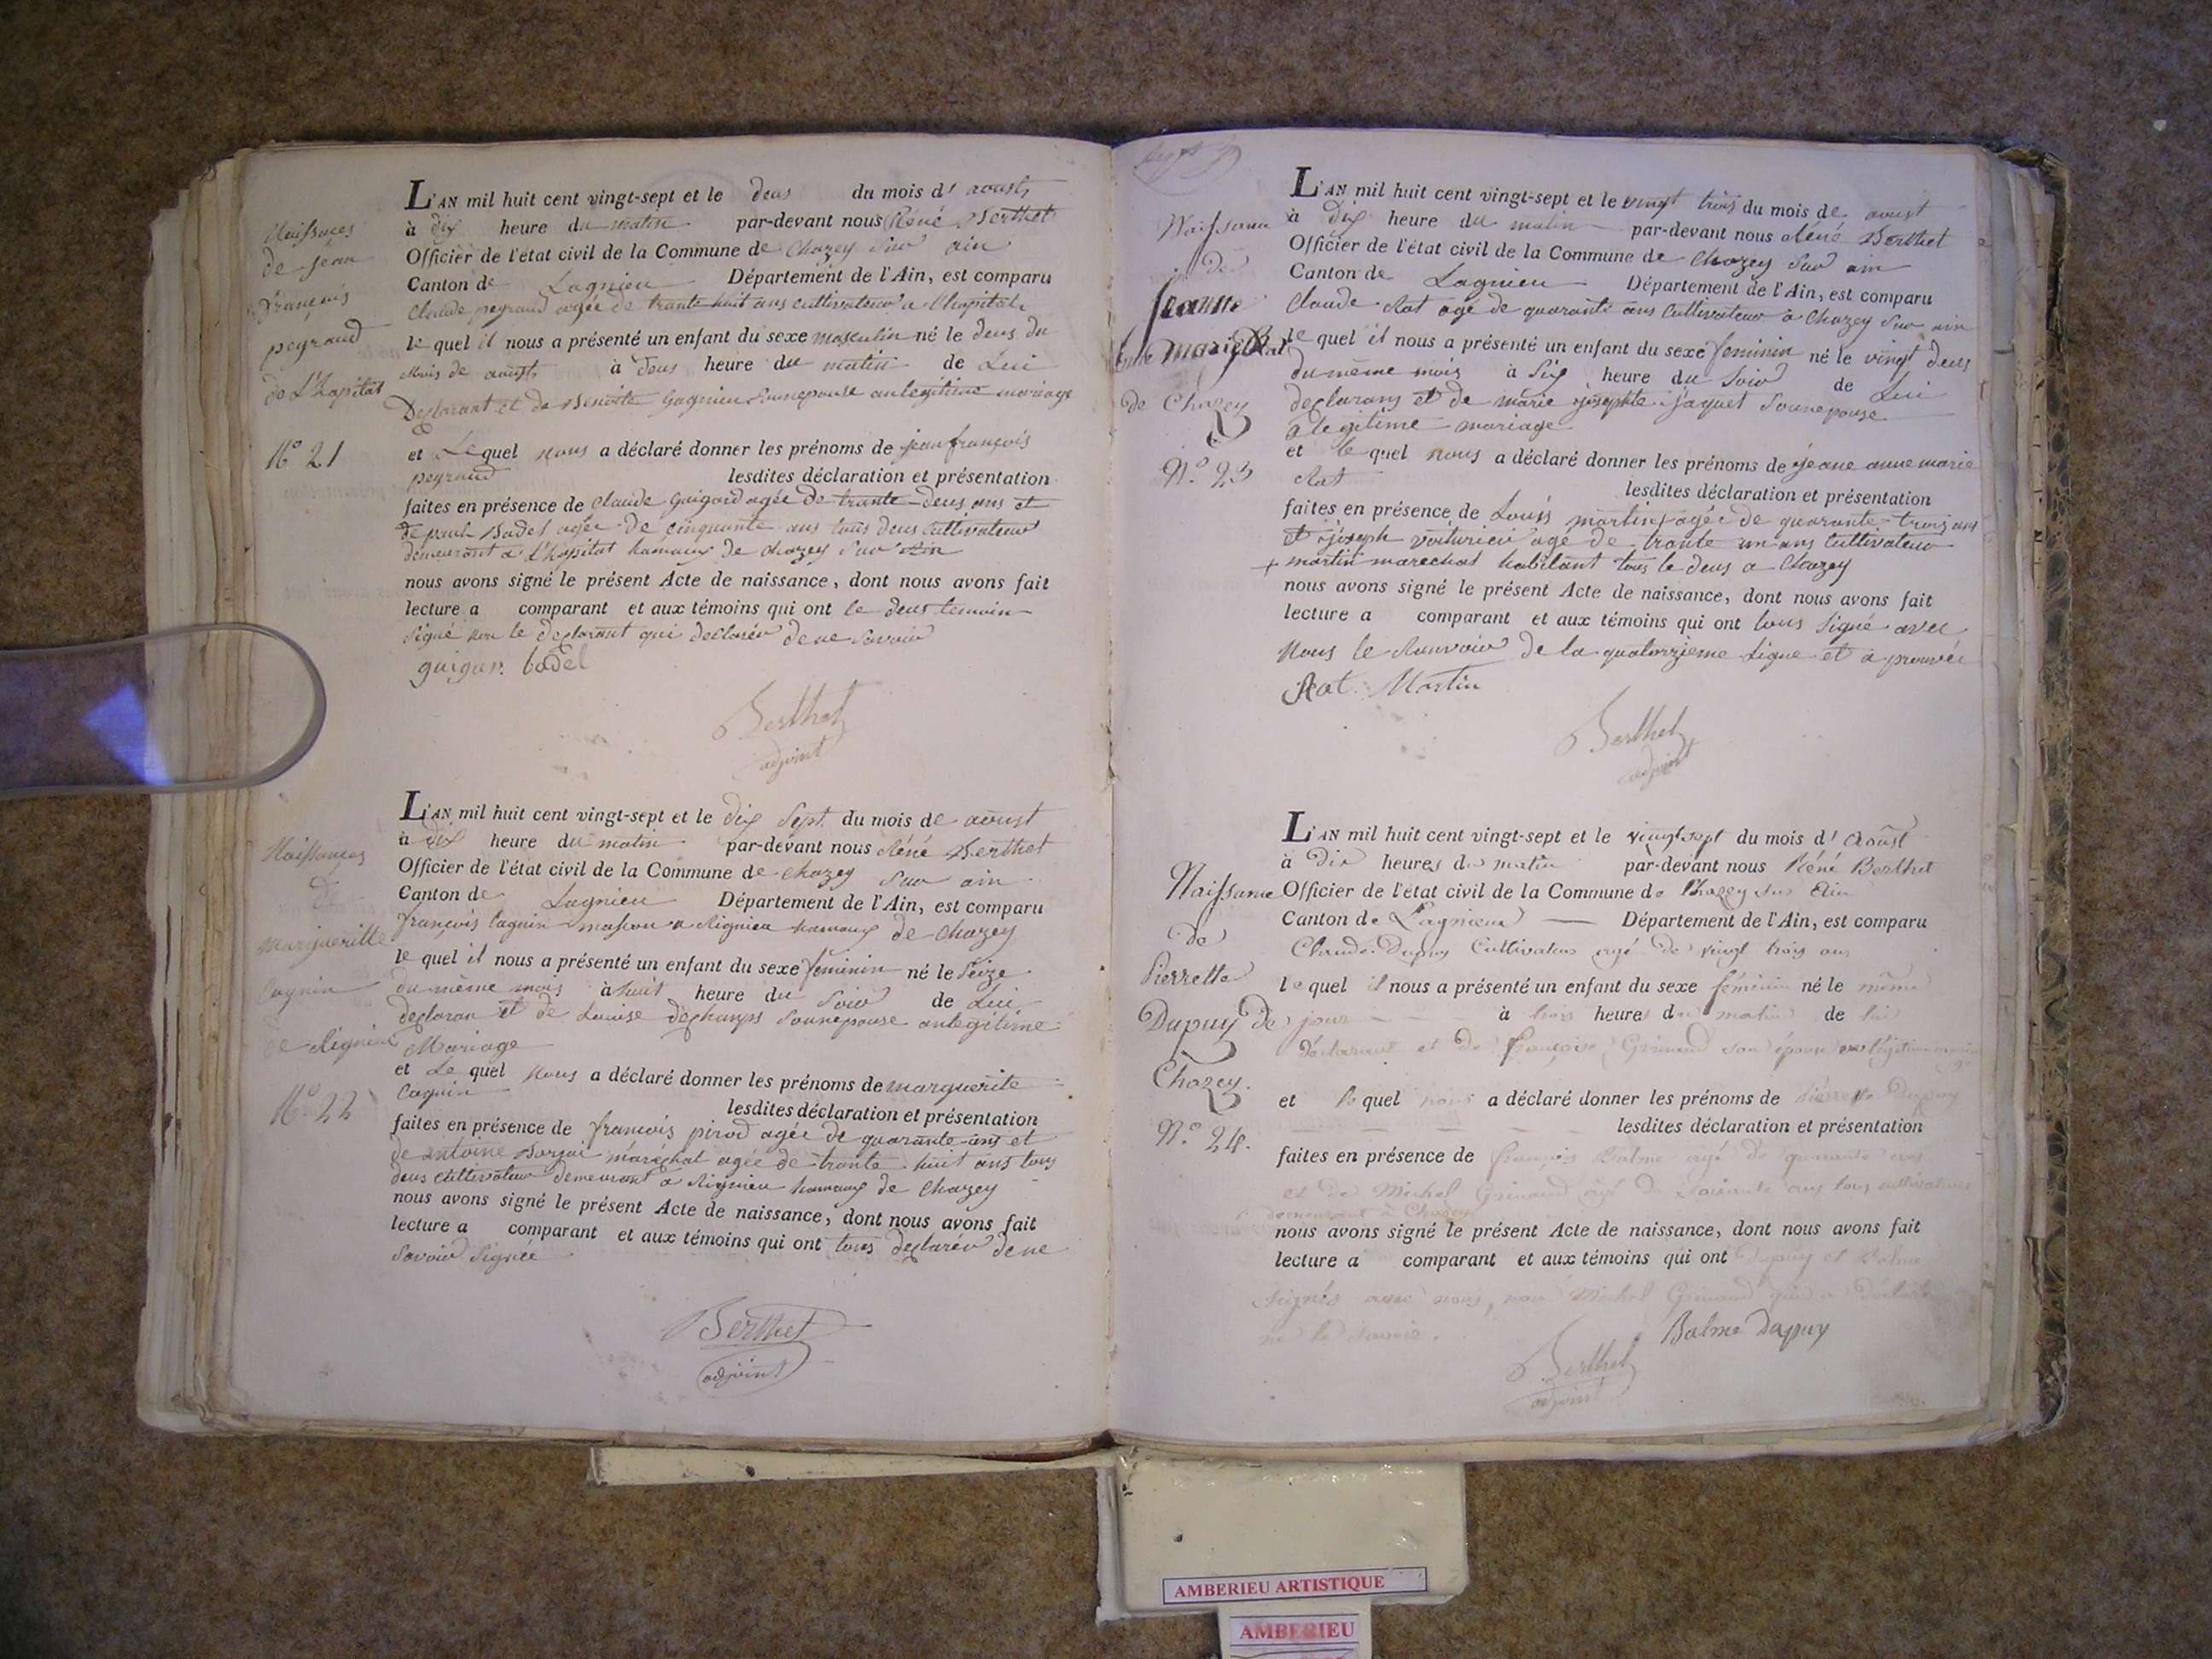 Naissances
de jean
françois
pegraud
de L'hopital
N° 21
L'AN mil huit cent vingt-sept et le deus du mois d' aoust
à dix heure du matin par-devant nous René Berthet
Officier de l'état civil de la Commune de Chazey sur ain
Canton de Lagnieu Département de l'Ain, est comparu
Claude pegraud agée de trante huit ans cultivateur a Lhopital
le quel il nous a présenté un enfant du sexe masculin né le deus du
Mois de aoust à deus heure du matin de Lui
Declarant et de Benoite Gagnieu sounepouse anlegitime mariage
et Le quel nous a déclaré donner les prénoms de jean françois
pegraud lesdites déclaration et présentation
faites en présence de Claude Guigard agée de trante-deus ans et
de paul Badel agée de cinquante ans tous deus Cultivateur
demeurant a L'hopital hamaux de chazey sur Ain
nous avons signé le présent Acte de naissance, dont nous avons fait
lecture a comparant et aux témoins qui ont le deus temoin
signé non le declarant qui declarér de ne savoir
guigar. badel
Berthet
adjoint
Naissances
de
margueritte
Cagnin
de Rignieu
N° 22
L'AN mil huit cent vingt-sept et le dix sept du mois de aoust
à dix heure du matin par-devant nous Réné Berthet
Officier de l'état civil de la Commune de Chazey sur ain
Canton de Lagnieu Département de l'Ain, est comparu
françois Cagnin masson a Rignieu hamaux de Chazey
le quel il nous a présenté un enfant du sexe féminin né le seize
du même mois à huit heure du soir de Lui
declaran et de Louise dechamps sounepouse antegitime
Mariage
et Le quel nous a déclaré donner les prénoms de marguerite
Cagnin lesdites déclaration et présentation
faites en présence de francois pirod agée de quarante ans et
de antoine maréchal agée de trante huit ans tous
deus cultivateur demeurant a Rignieu hamaux de Chazey
nous avons signé le présent Acte de naissance, dont nous avons fait
lecture a comparant et aux témoins qui ont tous declarér de ne
savoir signée
Berthet
adjoint
Naissance
de
Jeanne
anne Marie Rat
de Chazey
N.° 23
L'AN mil huit cent vingt-sept et le vingt trois du mois de aoust
à dix heure du matin par-devant nous Réné Berthet
Officier de l'état civil de la Commune de Chazey sur ain
Canton de Lagnieu Département de l'Ain, est comparu
Claude Rat agé de quarante ans Cultivateur a Chazey sur ain
le quel il nous a présenté un enfant du sexe feminin né le vingt deus
du même mois à six heure du soir de Lui
declarans et de marie josephte jaquet sounepouse
a legitime mariage
et le quel nous a déclaré donner les prénoms de jeane anne marie
Rat lesdites déclaration et présentation
faites en présence de Louis martin + agée de quarante trois ans
et joseph voiturieu agé de trante un ans Cultivateur
+ martin marechal habitant tous le deus a Chazey
nous avons signé le présent Acte de naissance, dont nous avons fait
lecture a comparant et aux témoins qui ont tous signé avec
Nous le Ranvoir de la quatorzieme Ligne et a prouvée
Rat Martin
Berthet
adjoint
Naissance
de
Pierrette
Dupuy de
Chazey.
N.° 24.
L'AN mil huit cent vingt-sept et le vingt sept du mois d' Août
à dix heures du matin par-devant nous Réné Berthet
Officier de l'état civil de la Commune de Chazey sur Ain
Canton de Lagnieux Département de l'Ain, est comparu
Claude Dupuy Cultivateur agé de vingt trois ans
le quel il nous a présenté un enfant du sexe féminin né le même
jour à trois heures du matin de lui
déclarant et de françoise Grimaud son épouse en légitime mariage
et le quel nous a déclaré donner les prénoms de Pierrette Dupuy
lesdites déclaration et présentation
faites en présence de françois Balme agé de quarante ans
et de Michel Grimaud agé de soixante ans tous cultivateurs
demeurant à Chazey
nous avons signé le présent Acte de naissance, dont nous avons fait
lecture a comparant et aux témoins qui ont Dupuy et Balme
signés avec nous, non Michel Grimaud qui a déclaré
ne le savoir.
Balme Dupuy
Berthet
adjoint
AMBERIEU ARTISTIQUE
AMBERIEU